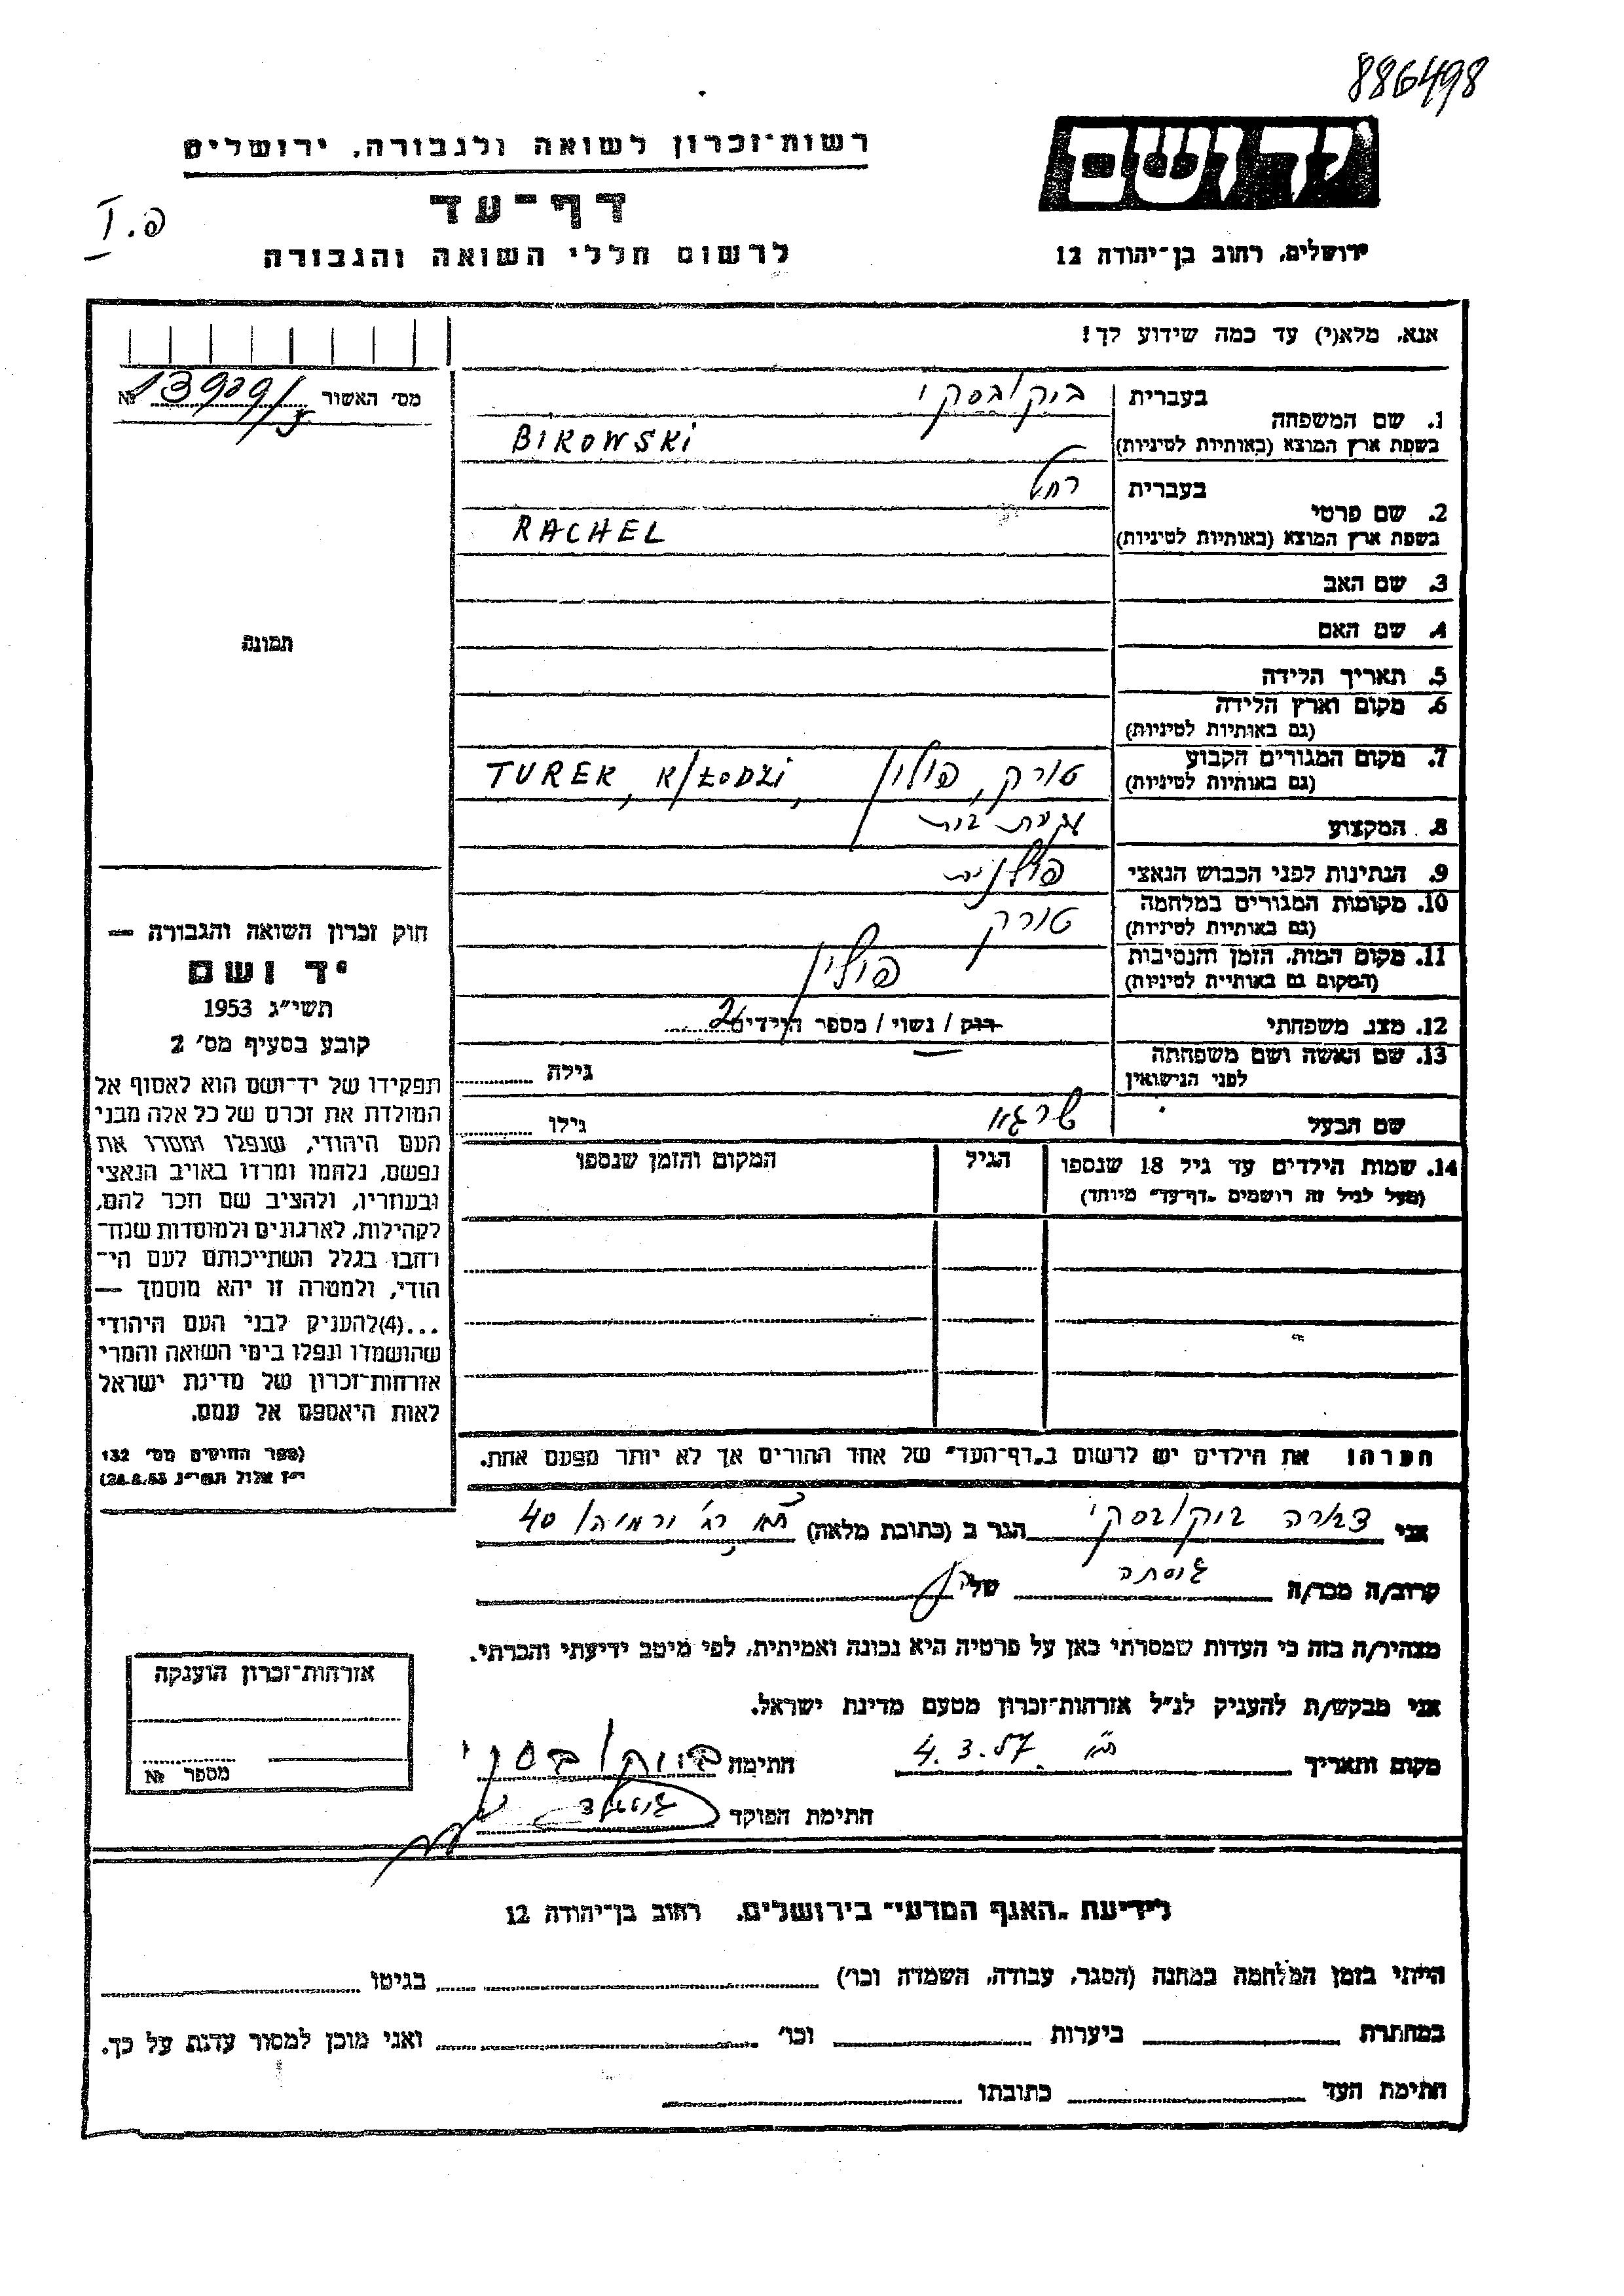 886498
יד ושם
ירושלים, רחוב בן־יהודה 12
רשות־זכרון לשואה ולגבורה, ירושלים
דף־עד
לרשום חללי השואה והגבורה
פ. I
אנא, מלא(י) עד כמה שידוע לך!
מס׳ האשור №
1. שם המשפחה
בעברית
ביקובסקי
בשפת ארץ המוצא (באותיות לטיניות)
BIKOWSKI
2. שם פרטי
בעברית
רחל
בשפת ארץ המוצא (באותיות לטיניות)
RACHEL
3. שם האב
4. שם האם
5. תאריך הלידה
6. מקום וארץ הלידה
(גם באותיות לטיניות)
7. מקום המגורים הקבוע
(גם באותיות לטיניות)
טורק, פולין, TUREK, K/ŁODZI
8. המקצוע עקרת בית
9. הנתינות לפני הכבוש הנאצי פולנית
10. מקומות המגורים במלחמה
(גם באותיות לטיניות)
טורק
11. מקום המות, הזמן והנסיבות
(המקום גם באותיות לטיניות)
פולין
12. מצב משפחתי רווק / נשוי / מספר הילדים 2
13. שם האשה ושם משפחתה
לפני הנישואין
גילה
שם הבעל שרגא גילו
14. שמות הילדים עד גיל 18 שנספו
(מעל לגיל זה רושמים „דף־עד״ מיוחד)
הגיל
המקום והזמן שנספו
תמונה
חוק זכרון השואה והגבורה —
יד ושם
תשי״ג 1953
קובע בסעיף מס׳ 2
תפקידו של יד־ושם הוא לאסוף אל
המולדת את זכרם של כל אלה מבני
העם היהודי, שנפלו ומסרו את
נפשם, נלחמו ומרדו באויב הנאצי
ובעוזריו, ולהציב שם וזכר להם,
לקהילות, לארגונים ולמוסדות שנח־
רחבו בגלל השתייכותם לעם הי־
הודי, ולמטרה זו יהא מוסמך —
...(4)להעניק לבני העם היהודי
שהושמדו ונפלו בימי השואה והמרי
אזרחות־זכרון של מדינת ישראל
לאות היאספם אל עמם.
(ספר החוקים מס׳ 132
י״ז אלול תשי״ג 28.8.53)
הערה: את הילדים יש לרשום ב„דף־העד״ של אחד ההורים אך לא יותר מפעם אחת.
אני ביקובסקי הגר ב (כתובת מלאה) 40
קרוב/ה מכר/ה גיסתה של
מצהיר/ה בזה כי העדות שמסרתי כאן על פרטיה היא נכונה ואמיתית, לפי מיטב ידיעתי והכרתי.
אני מבקש/ת להעניק לנ״ל אזרחות־זכרון מטעם מדינת ישראל.
מקום ותאריך ת״א 4.3.57 חתימה ביקובסקי
חתימת הפוקד
אזרחות־זכרון הוענקה
מספר №
לידיעת „האגף המדעי״ בירושלים, רחוב בן־יהודה 12
הייתי בזמן המלחמה במחנה (הסגר, עבודה, השמדה וכו׳) בגיטו
במחתרת ביערות וכו׳ ואני מוכן למסור עדות על כך.
חתימת העד כתובתו